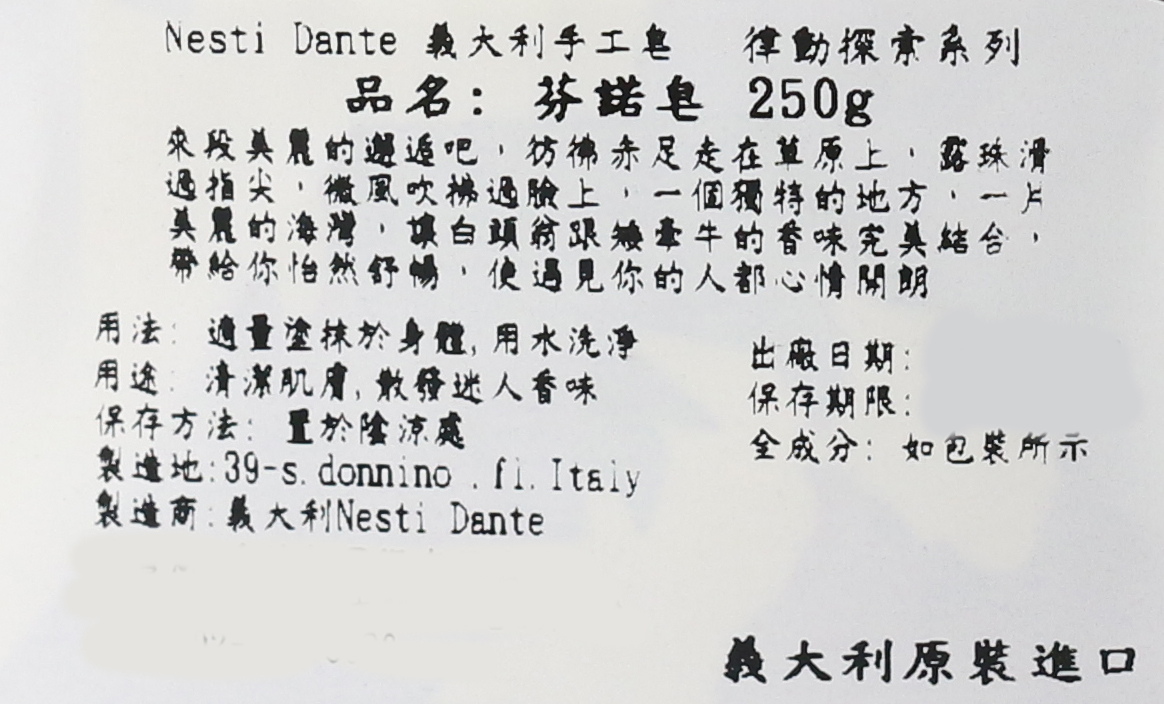 Nesti Dante 義大利手工皂 律動探索系列
品名: 芬諾皂 250g
來段美麗的邂逅吧,彷彿赤足走在草原上,露珠滑
過指尖,微風吹拂過臉上,一個獨特的地方,一片
美麗的海灣,讓白頭翁跟矮牽牛的香味完美結合,
帶給你怡然舒暢,使遇見你的人都心情開朗
用法: 適量塗抹於身體,用水洗淨
用途: 清潔肌膚,散發迷人香味
保存方法: 置於陰涼處
製造地:39-s.donnino .fi.Italy
製造商:義大利Nesti Dante
出廠日期:
保存期限:
全成分: 如包裝所示
義大利原裝進口